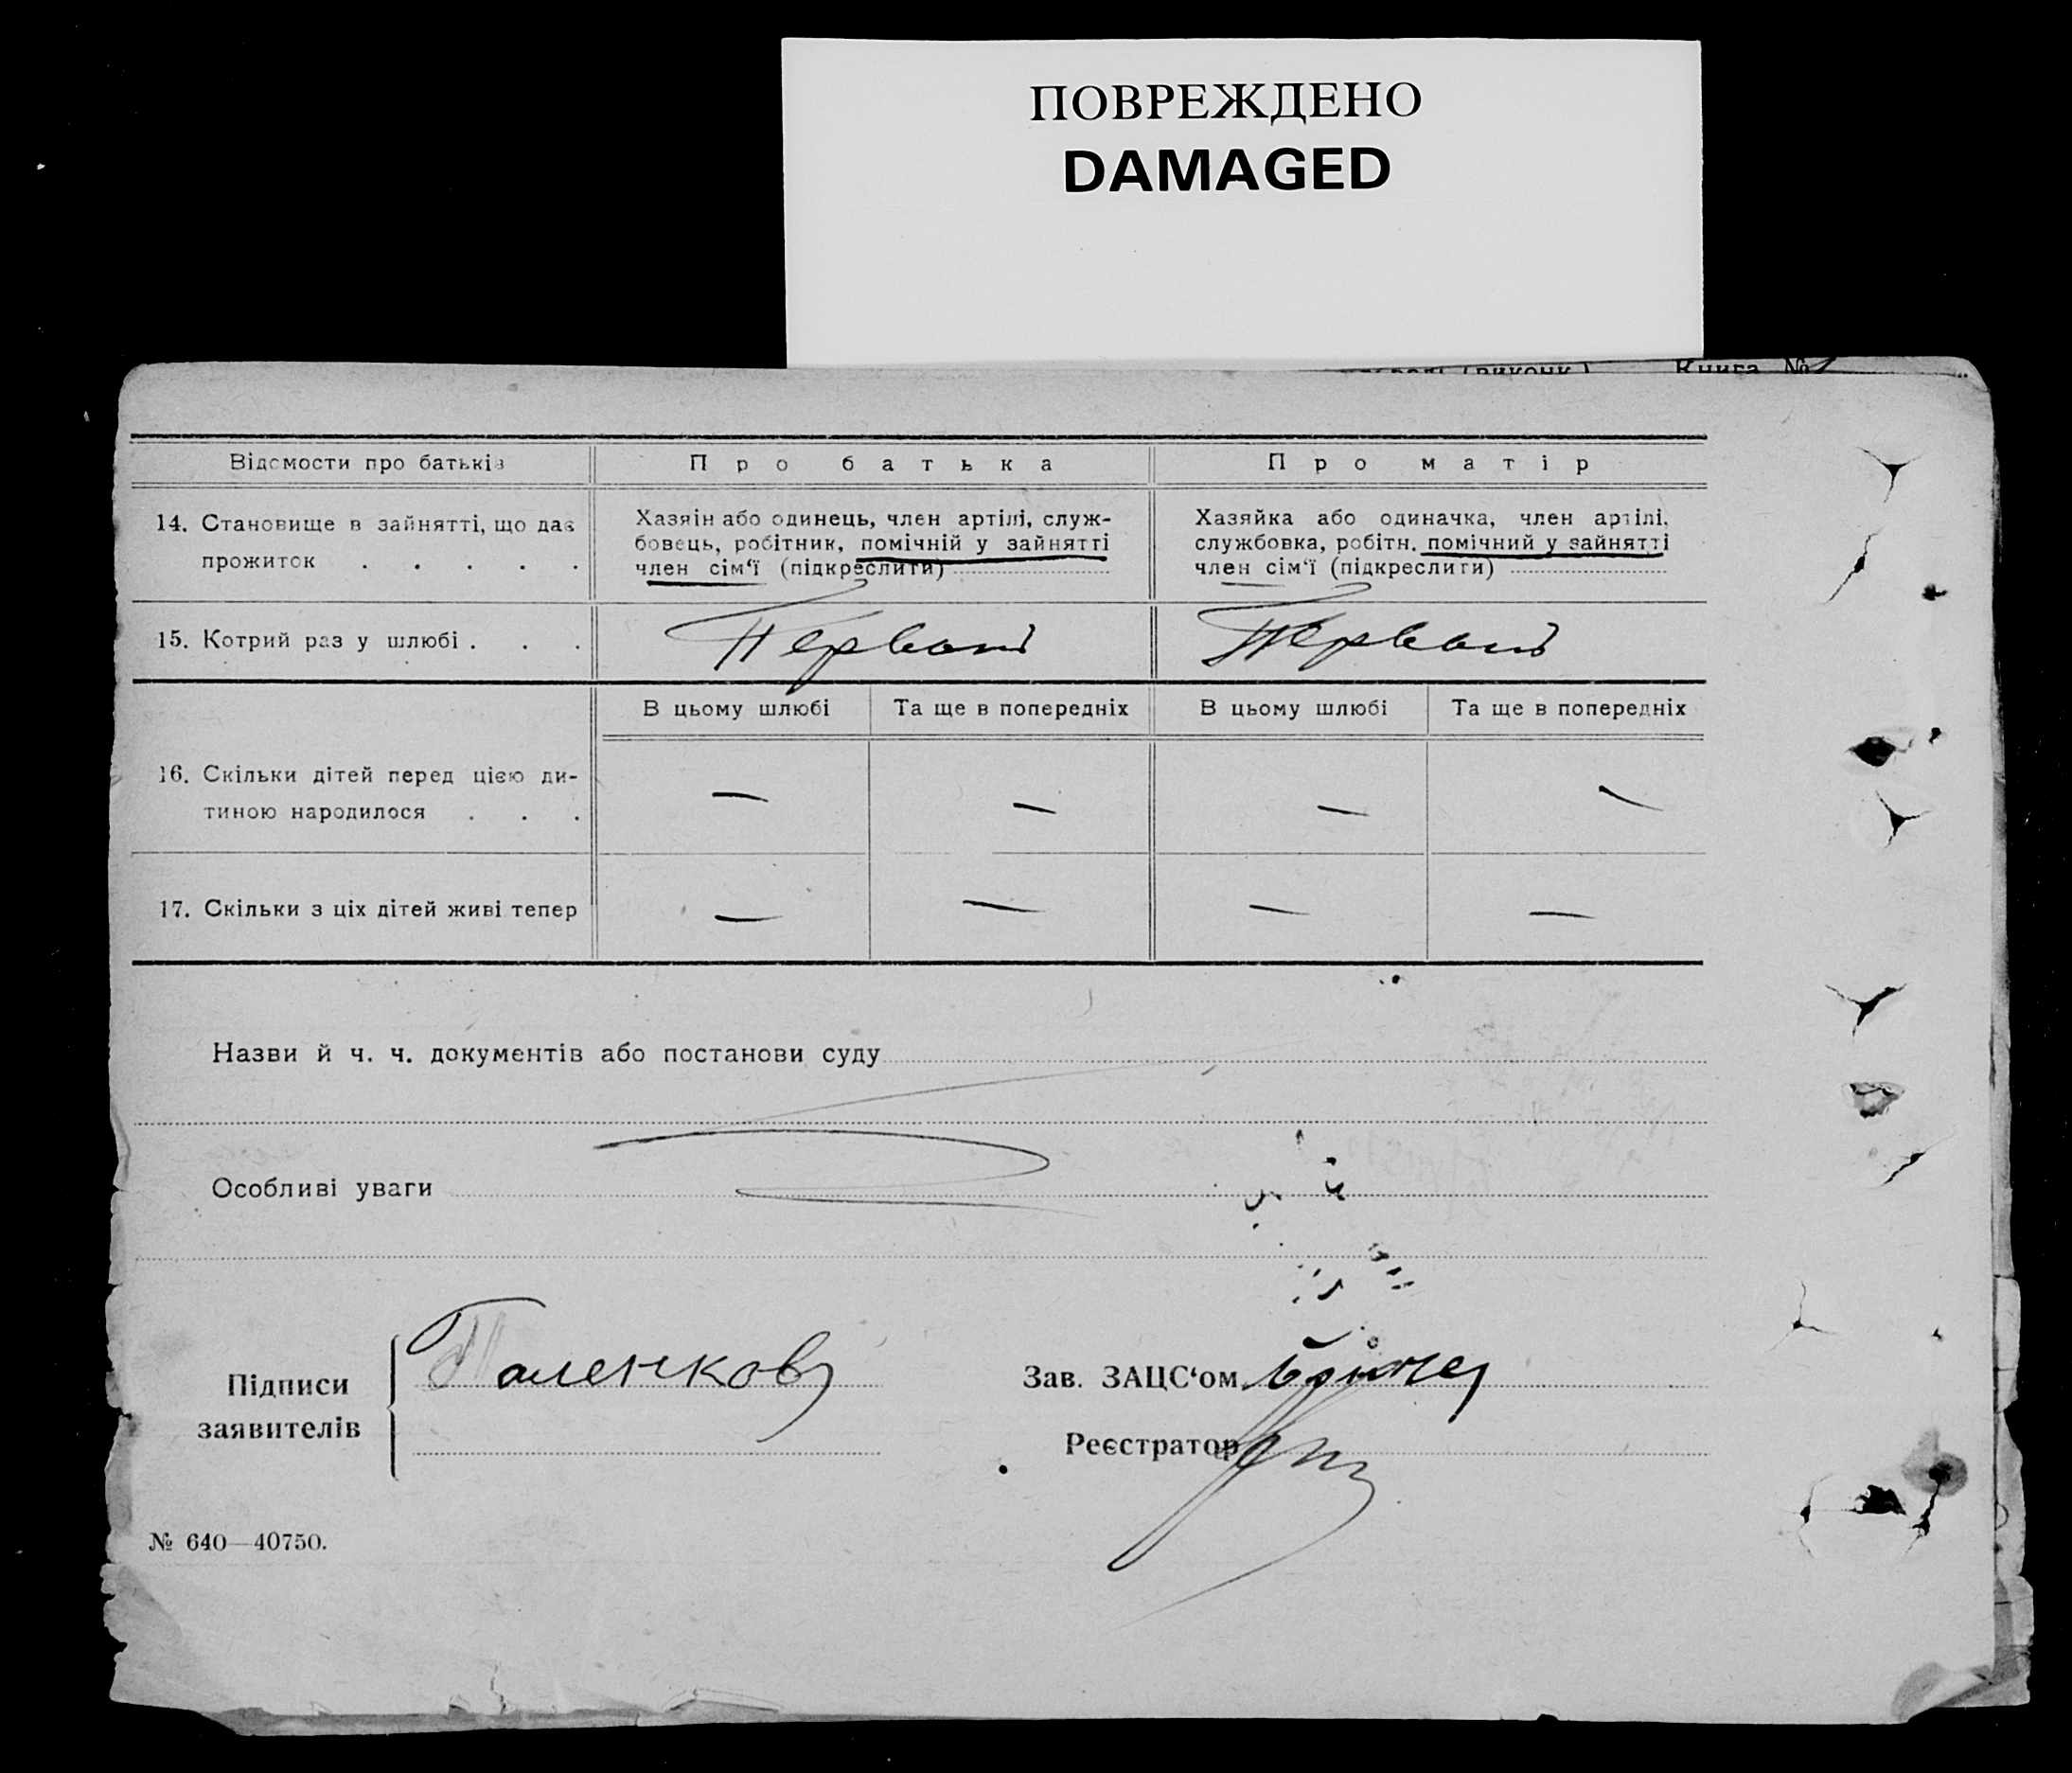 ПОВРЕЖДЕНО
DAMAGED
Книга №
Відомости про батьків
Про батька
Про матір
14. Становище в зайнятті, що дає
прожиток . . . . .
Хазяін або одинець, член артілі, служ-
бовець, робітник, помічній у зайнятті
член сім‘ї (підкреслити)
Хазяйка або одиначка, член артілі,
службовка, робітн. помічний у зайнятті
член сім‘ї (підкреслити)
15. Котрий раз у шлюбі . . .
В цьому шлюбі
Та ще в попередніх
В цьому шлюбі
Та ще в попередніх
16. Скільки дітей перед цією ди-
тиною народилося . . .
— — — —
17. Скільки з ціх дітей живі тепер
— — — —
Назви й ч. ч. документів або постанови суду
Особливі уваги
Підписи
заявителів
Паленков
Зав. ЗАЦС‘ом
Реєстратор
№ 640—40750.